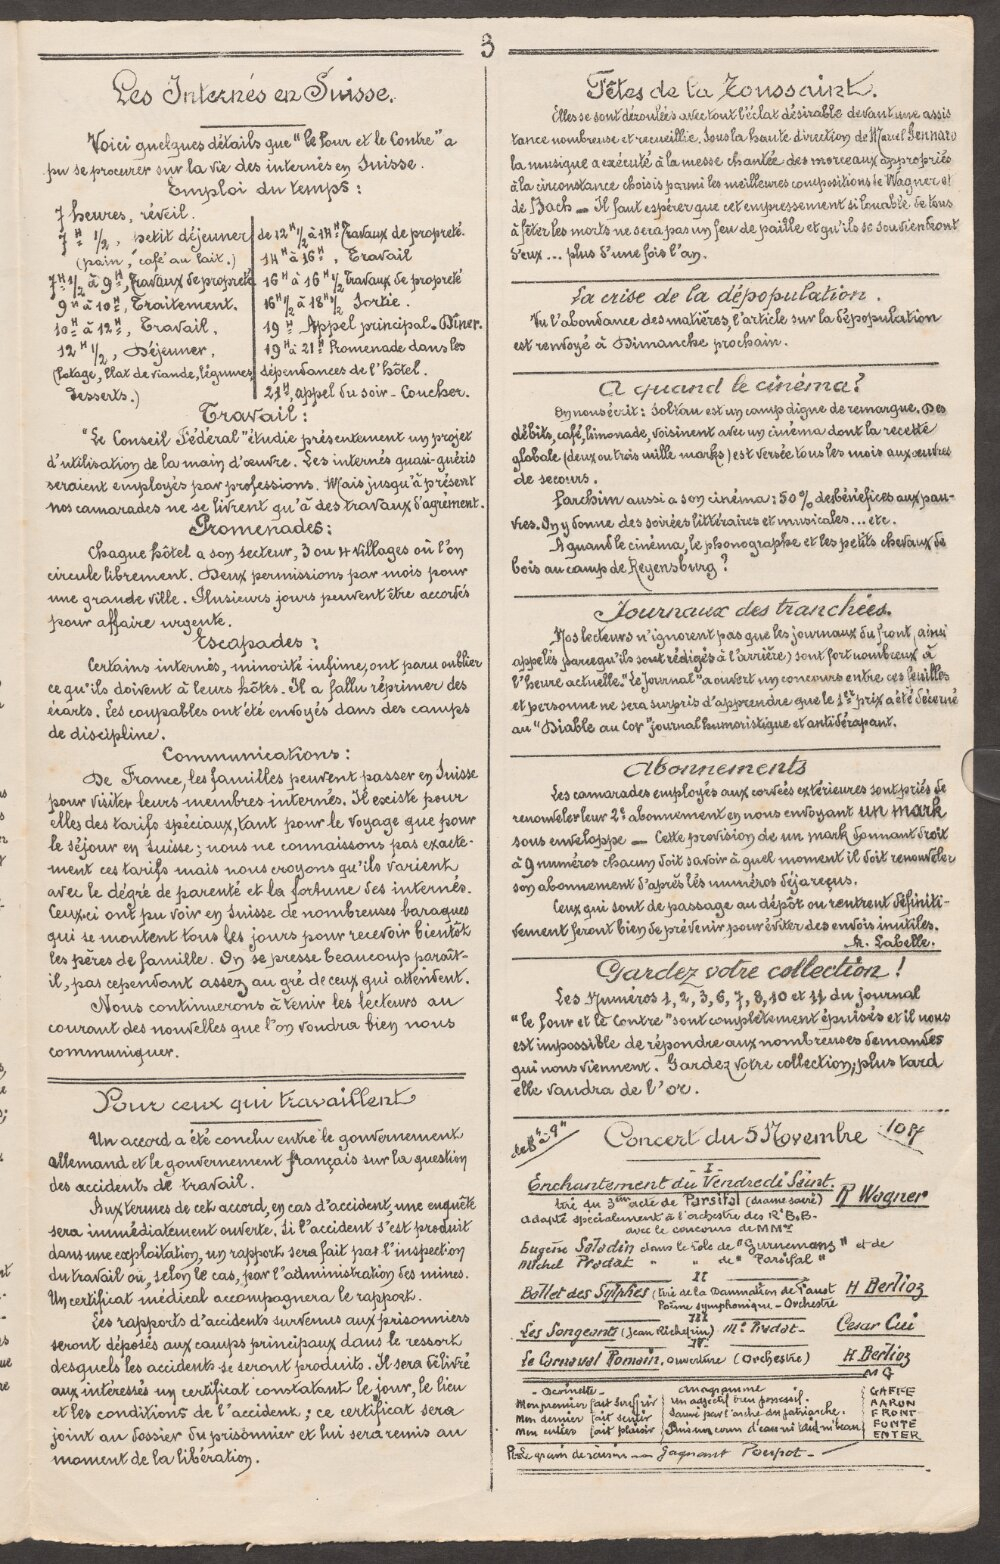 3
Les Internés en Suisse.
Voici quelques détails que "le Pour et le Contre" a
pu se procurer sur la vie des internés en Suisse.
Emploi du temps :
7 heures, réveil.
7H 1/2, petit déjeuner
(pain, café au lait.)
7H 1/2 à 9H, Travaux de propreté
9H à 10H, Traitement.
10H à 12H, Travail.
12H 1/2, Déjeuner.
(Potage, Plat de viande, légumes
desserts.)
de 12H 1/2 à 14H Travaux de propreté.
14H à 16H, Travail
16H à 16H 1/2 Travaux de propreté
16H 1/2 à 18H 1/2 Sortie.
19H Appel principal - Dîner.
19H à 21H Promenade dans les
dépendances de l'hôtel.
21H, appel du soir - Coucher.
Travail :
"Le Conseil Fédéral" étudie présentement un projet
d'utilisation de la main d'œuvre. Les internés quasi-guéris
seraient employés par professions. Mais jusqu'à présent
nos camarades ne se livrent qu'à des travaux d'agrément.
Promenades :
Chaque hôtel a son secteur, 3 ou 4 villages où l'on
circule librement. Deux permissions par mois pour
une grande ville. Plusieurs jours peuvent être accordés
pour affaire urgente.
Escapades :
Certains internés, minorité infime, ont paru oublier
ce qu'ils doivent à leurs hôtes. Il a fallu réprimer des
écarts. Les coupables ont été envoyés dans des camps
de discipline.
Communications :
De France, les familles peuvent passer en Suisse
pour visiter leurs membres internés. Il existe pour
elles des tarifs spéciaux, tant pour le voyage que pour
le séjour en Suisse ; nous ne connaissons pas exacte-
ment ces tarifs mais nous croyons qu'ils varient
avec le dégré de parenté et la fortune des internés.
Ceux-ci ont pu voir en Suisse de nombreuses baraques
qui se montent tous les jours pour recevoir bientôt
les pères de famille. On se presse beaucoup paraît-
il, pas cependant assez au gré de ceux qui attendent.
Nous continuerons à tenir les lecteurs au
courant des nouvelles que l'on voudra bien nous
communiquer.
Pour ceux qui travaillent
Un accord a été conclu entre le gouvernement
allemand et le gouvernement français sur la question
des accidents de travail.
Aux termes de cet accord, en cas d'accident, une enquête
sera immédiatement ouverte. Si l'accident s'est produit
dans une exploitation, un rapport sera fait par l'inspection
du travail ou, selon le cas, par l'administration des mines.
Un certificat médical accompagnera le rapport.
Les rapports d'accidents survenus aux prisonniers
seront déposés aux camps principaux dans le ressort
desquels les accidents se seront produits. Il sera délivré
aux intéressés un certificat constatant le jour, le lieu
et les conditions de l'accident ; ce certificat sera
joint au dossier du prisonnier et lui sera remis au
moment de la libération.
Fêtes de la Toussaint.
Elles se sont déroulées avec tout l'éclat désirable devant une assis
tance nombreuse et recueillie. Sous la haute direction de Marcel Gennaro
la musique a exécuté à la messe chantée des morceaux appropriés
à la circonstance choisis parmi les meilleures compositions de Wagner et
de Bach - Il faut espérer que cet empressement si louable de tous
à fêter les morts ne sera pas un feu de paille et qu'ils se souviendront
d'eux ... plus d'une fois l'an.
La crise de la dépopulation.
Vu l'abondance des matières, l'article sur la dépopulation
est renvoyé à Dimanche prochain.
A quand le cinéma ?
On nous écrit : Soltau est un camp digne de remarque. Des
débits, café, limonade, voisinent avec un cinéma dont la recette
globale (deux ou trois mille marks) est versée tous les mois aux œuvres
de secours.
Parchim aussi a son cinéma : 50 % des bénéfices aux pau-
vres. On y donne des soirées littéraires et musicales ... etc.
A quand le cinéma, le phonographe et les petits chevaux de
bois au camp de Regensburg ?
Journaux des tranchées.
Nos lecteurs n'ignorent pas que les journaux du front, ainsi
appelés parce qu'ils sont rédigés à l'arrière) sont fort nombreux à
l'heure actuelle. "Le Journal" a ouvert un concours entre ces feuilles
et personne ne sera surpris d'apprendre que le 1er prix a été décerné
au "Diable au Cor" journal humoristique et antidérapant.
Abonnements
Les camarades employés aux corvées extérieures sont priés de
renouveler leur 2e abonnement en nous envoyant un mark
sous enveloppe - Cette provision de un mark donnant droit
à 9 numéros chacun doit savoir à quel moment il doit renouveler
son abonnement d'après les numéros déjà reçus.
Ceux qui sont de passage au dépôt ou rentrent définiti-
vement feront bien de prévenir pour éviter des envois inutiles.
M. Labelle.
Gardez votre collection !
Les Numéros 1, 2, 3, 6, 7, 8, 10 et 11 du journal
"le Pour et le Contre" sont complètement épuisés et il nous
est impossible de répondre aux nombreuses demandes
qui nous viennent. Gardez votre collection, plus tard
elle vaudra de l'or.
de 8H à 9H Concert du 5 Novembre 10 Pf
I
Enchantement du Vendredi Saint. R Wagner
tiré du 3ème acte de Parsifal (drame sacré)
adapté spécialement à l'orchestre des
avec le concours de MMrs
Eugène Saladin dans le rôle de "Gurnemanz" et de
Michel Pradat " " de "Parsifal"
II
Ballet des Sylphes (tiré de la Damnation de Faust H Berlioz
Poème symphonique - Orchestre
III
Les Songeants (Jean Richepin) Mr Pradat - Cesar Cui
IV
Le Carnaval Romain, ouverture (Orchestre) H. Berlioz
MG
- Devinette -
Mon premier fait souffrir
Mon dernier fait sentir
Mon entier fait plaisir
Anagramme
Un adjectif bien possessif.
Sauvé par l'arche du patriarche.
Puis un cours d'eau ni
GAFFE
AARON
FRONT
FONTE
ENTER
P. Le grain de raisin - Gagnant Poupot -